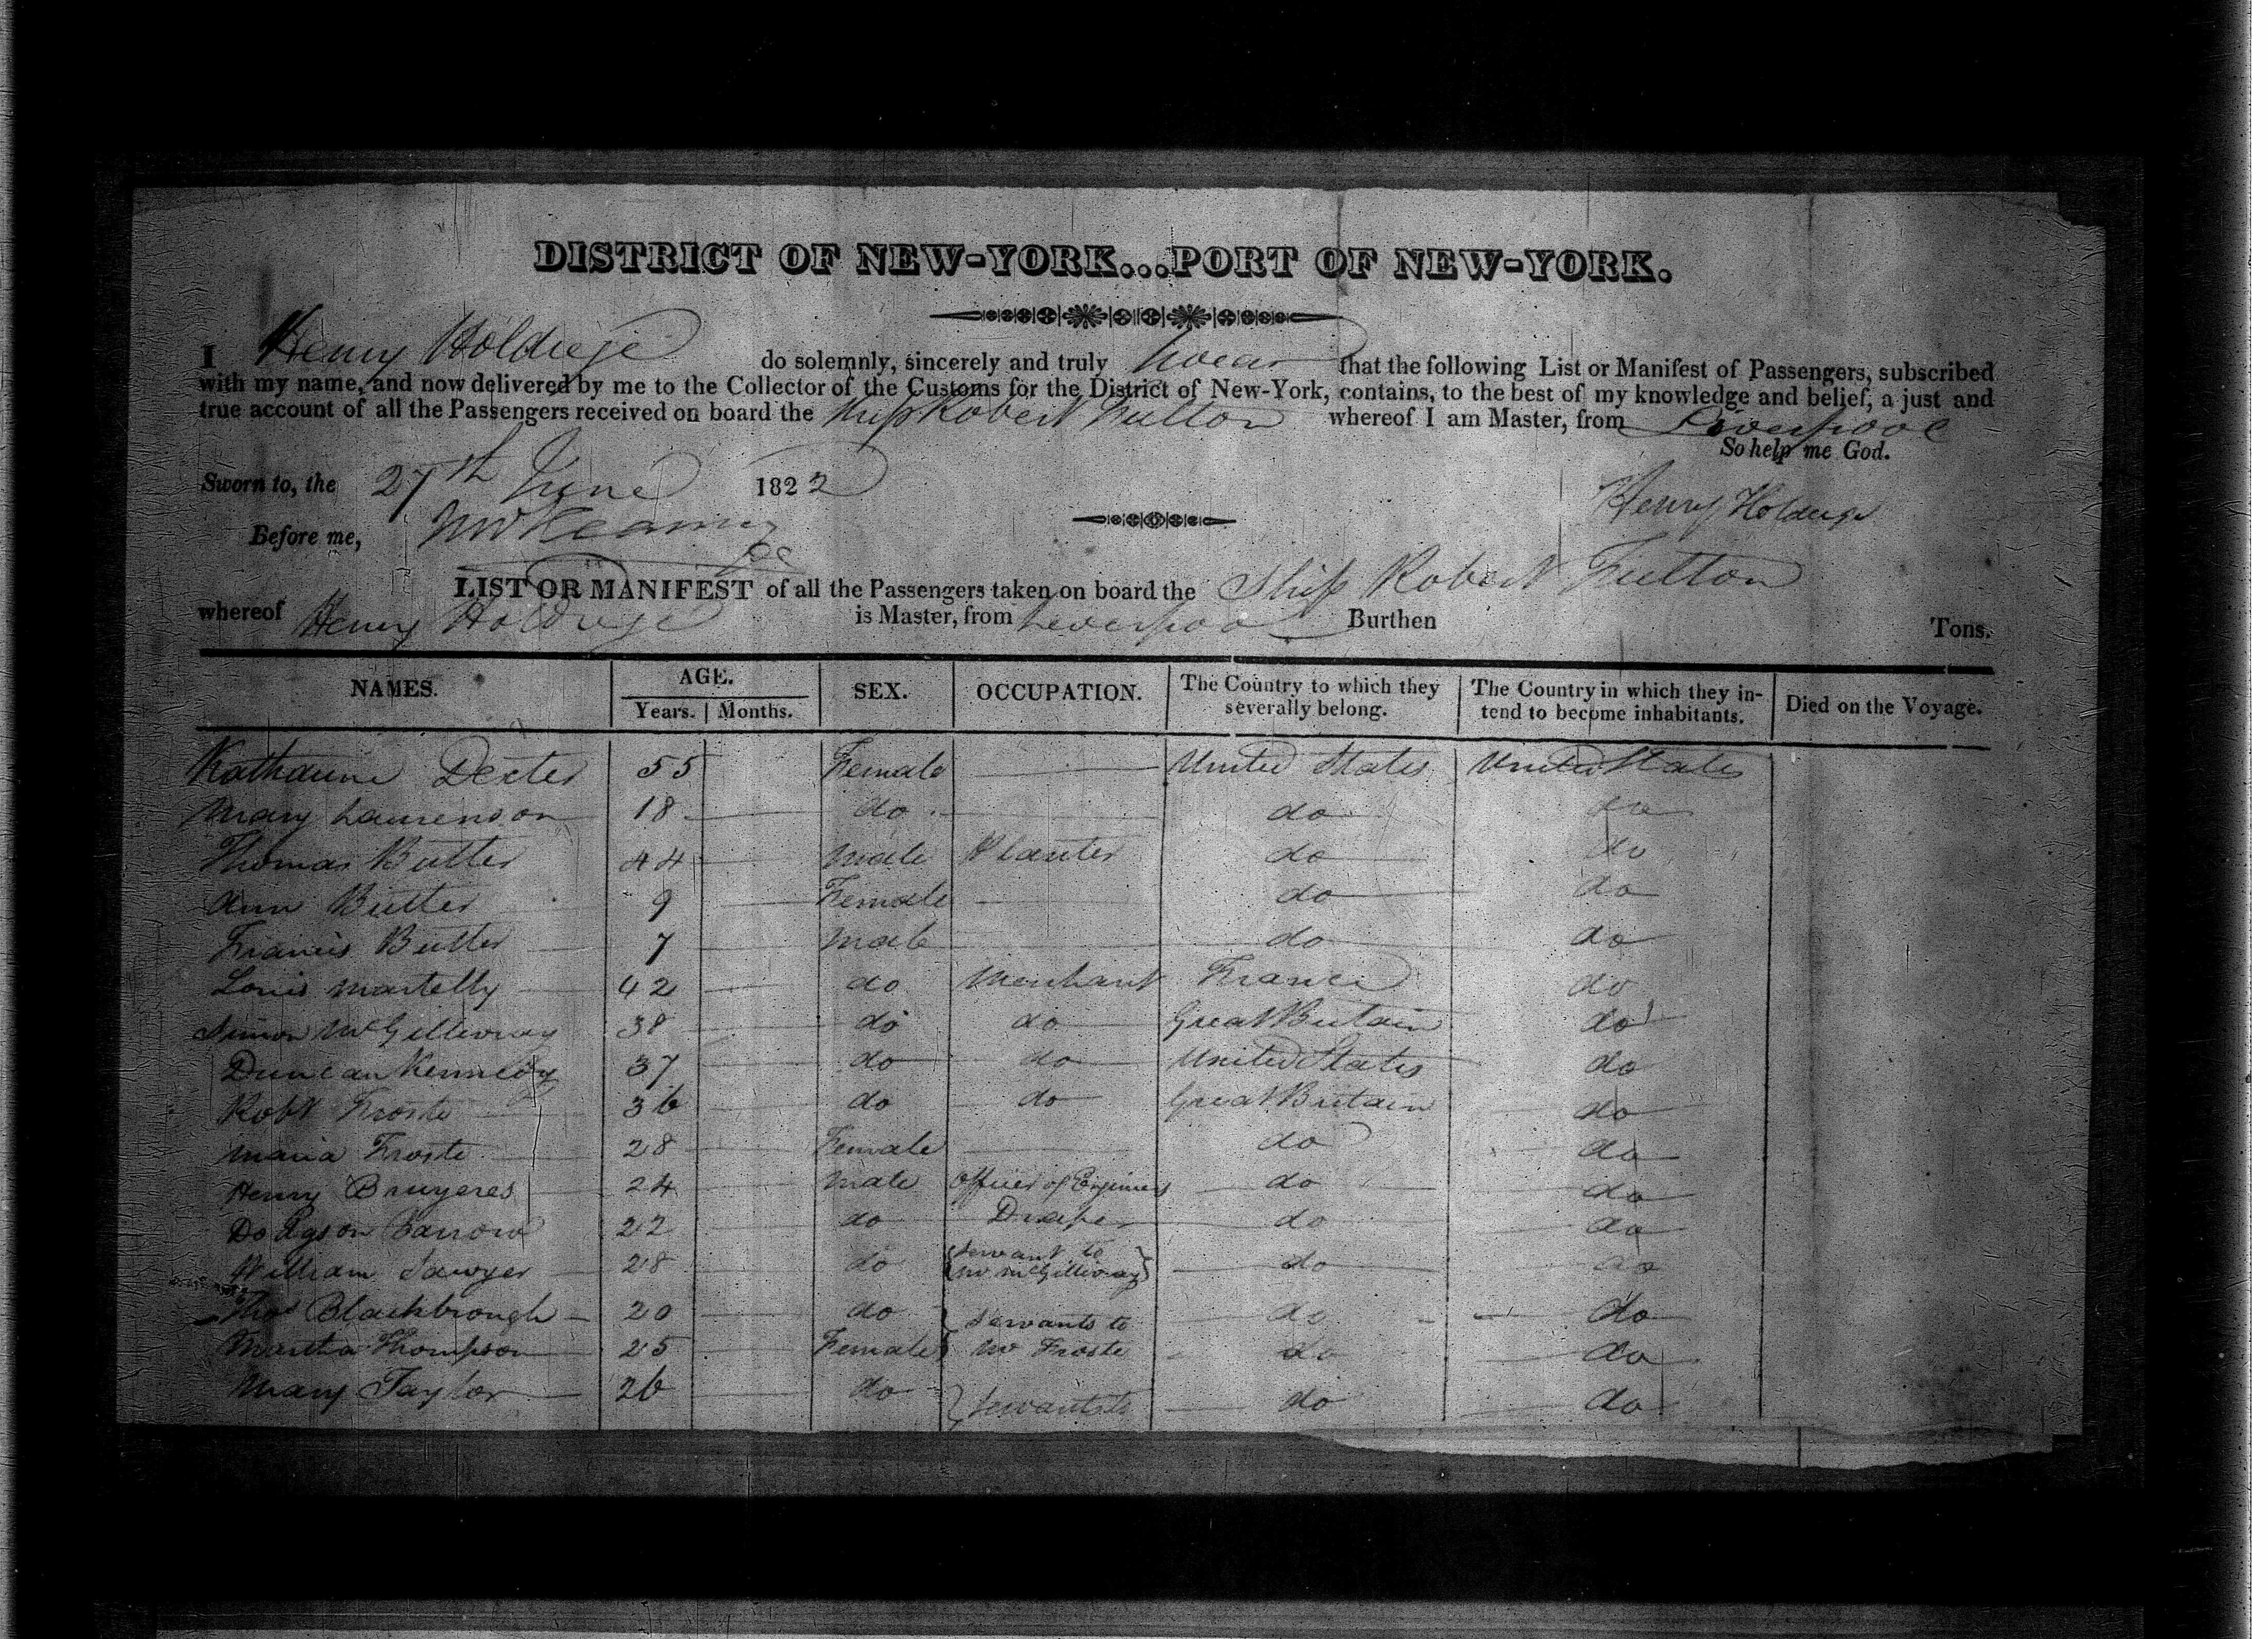 DISTRICT OF NEW-YORK...PORT OF NEW-YORK.
I Henry Holdrege do solemnly, sincerely and truly swear that the following List or Manifest of Passengers, subscribed
with my name, and now delivered by me to the Collector of the Customs for the District of New-York, contains, to the best of my knowledge and belief, a just and
true account of all the Passengers received on board the Ship Robert Fulton whereof I am Master, from Liverpool
So help me God.
Sworn to, the 27th June 1822
Henry Holdrege
Before me,
LIST OR MANIFEST of all the Passengers taken on board the Ship Robert Fulton
whereof Henry Holdrege is Master, from Liverpool Burthen Tons.
NAMES. AGE. SEX. OCCUPATION. The Country to which they severally belong. The Country in which they intend to become inhabitants. Died on the Voyage.
Years. Months.
Katharine Dexter 55 Female United States United States
Mary Laurenson 18 do do do
Thomas Butler 44 Male Planter do do
Ann Butler 9 Female do do
Francis Butler 7 Male do do
Louis Martelly 42 do Merchant France do
Simon McGillivray 38 do do Great Britain do
Duncan Kennedy 37 do do United States do
Robt Froste 36 do do Great Britain do
Maria Froste 28 Female do do
Henry Bruyeres 24 Male Officer of Engineers do do
Dodgson Barrow 22 do Draper do do
William Sawyer 28 do Servant to Mr McGillivray do do
Thos Blackbrough 20 do Servants to do do
Martha Thompson 25 Female Mr Froste do do
Mary Taylor 26 do Servants to do do